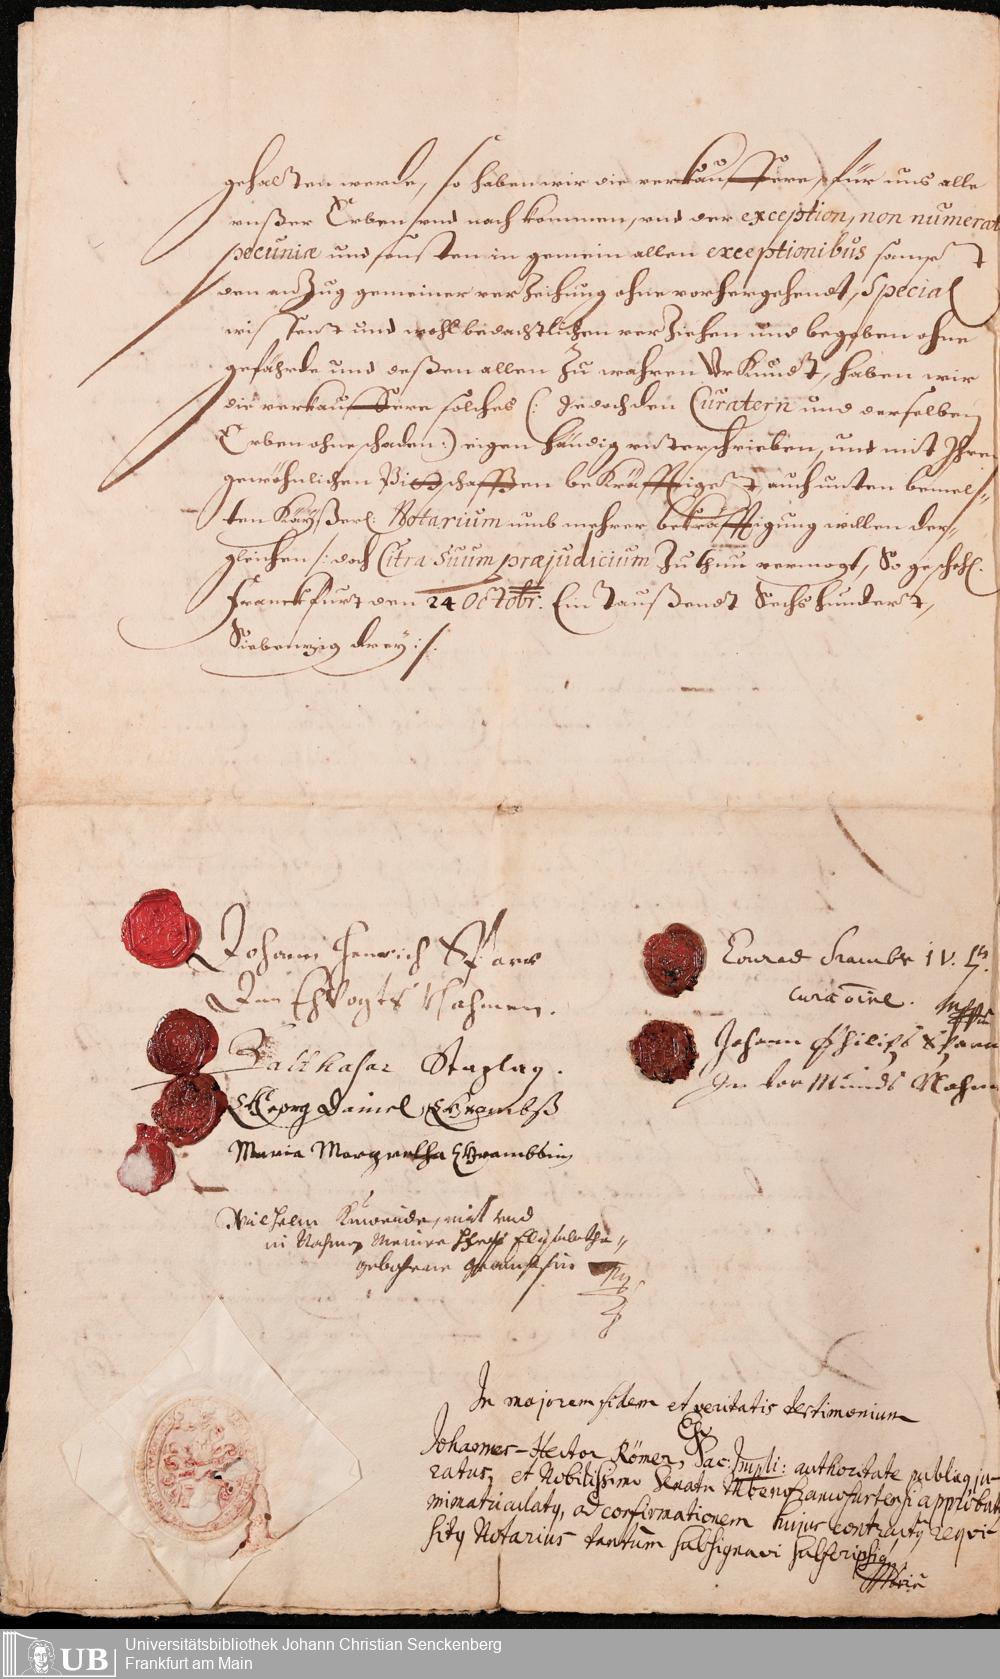 gehalten werde, so haben wir die verkauffere, für uns alle
vnßer Erben vnd nachkommen, vnd der exception, non numerat
pecuniæ und sonsten in gemein allen exceptionibus sampt
den anZug gemeiner verZeihung ohne vorhergehendt, Special
wissent und wohlbedachtlichen verZiehen und begeben ohne
gefährde und deßen allen Zu wahren VrKundt, haben wir
die verkauffere solches (: Jedoch den Curatern und derselben
Erben ohne schaden :) eigenhändig vnterschrieben, und mit Ihren
gewöhnlichen Pittschafften beKräfftiget, auch unten bemel-
ten Kayßerl: Notarium umb mehrer bekräfftigung willen der-
gleichen /: doch Citra Suum præjudicium Zu thun vermogt, So geschehl.
Franckfurt den 24 Octobr: Ein Taußendt Sechshundert,
Siebentzig drey :/:
Johann Henrich
Im Nahmen.
Balthasar
Georg Daniel
Maria Margretha
Wilhelm mit vnd
in Nahmen Meiner
gebohrene
Conrad
curatoire.
Johann Philips
In vor Munds Nahm
In majorem fidem et veritatis testimonium
Johannes-Hector Römer, Sac: Impli: authoritate publicq ju-
ratus, et Nobilissimo Senatu Moenofrancofurtensi approbat,
immatriculatq, ad confirmationem hujus contractq requi-
sitq Notarius tantum subsignavi subscripsiq
Universitätsbibliothek Johann Christian Senckenberg
UB Frankfurt am Main